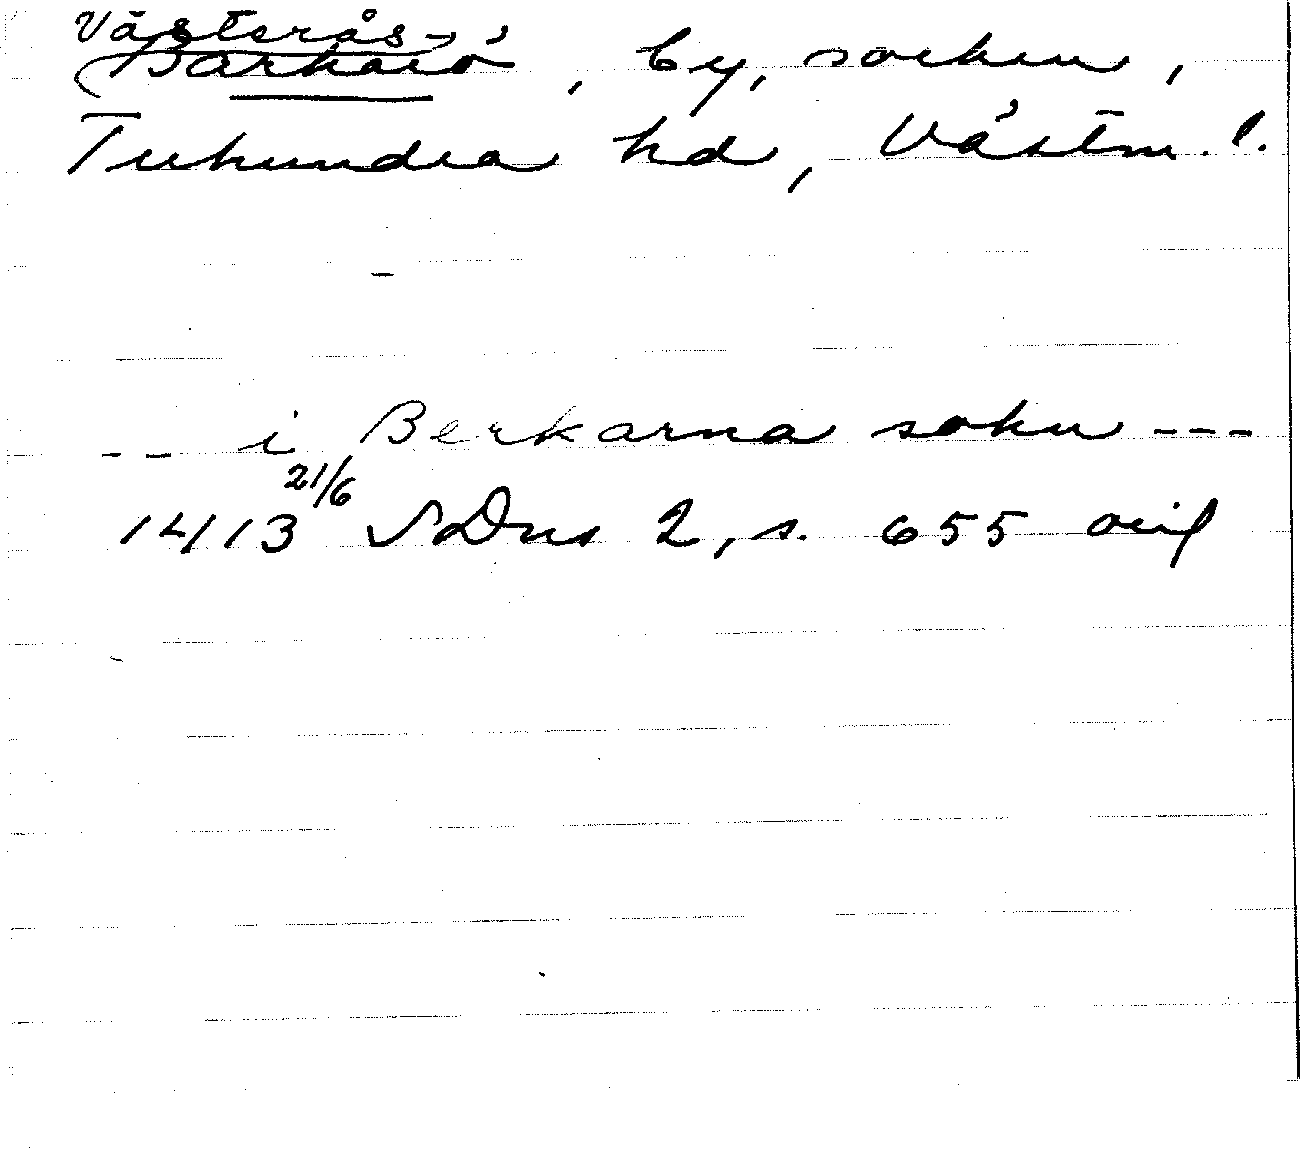 Västerås-
Barkarö, by, socken,
Tuhundra hd, Västm. l.
-- i Berkarna sokn ---
1413 21/6 SDns 2, s. 655 orig